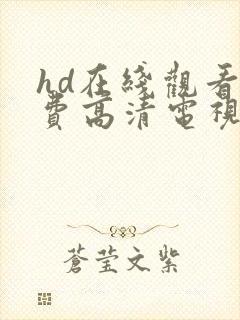 hd在綫觀看
費高清電視
蒼莹文紫